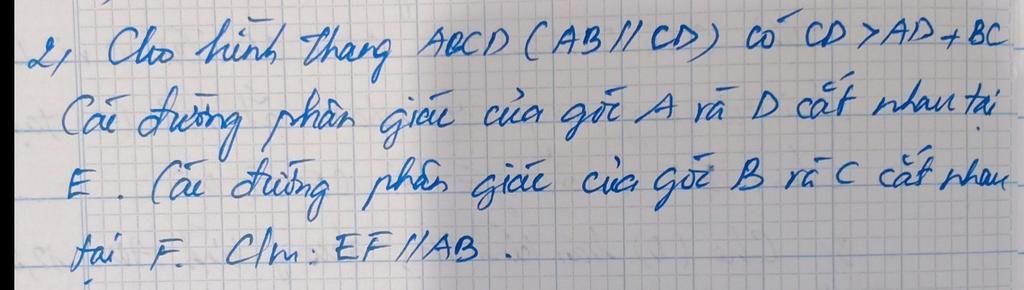 2, Cho hình thang ABCD (AB//CD) có CD > AD + BC
Các đường phân giác của góc A và D cắt nhau tại
E. Các đường phân giác của góc B và C cắt nhau
tại F. C/m: EF//AB.